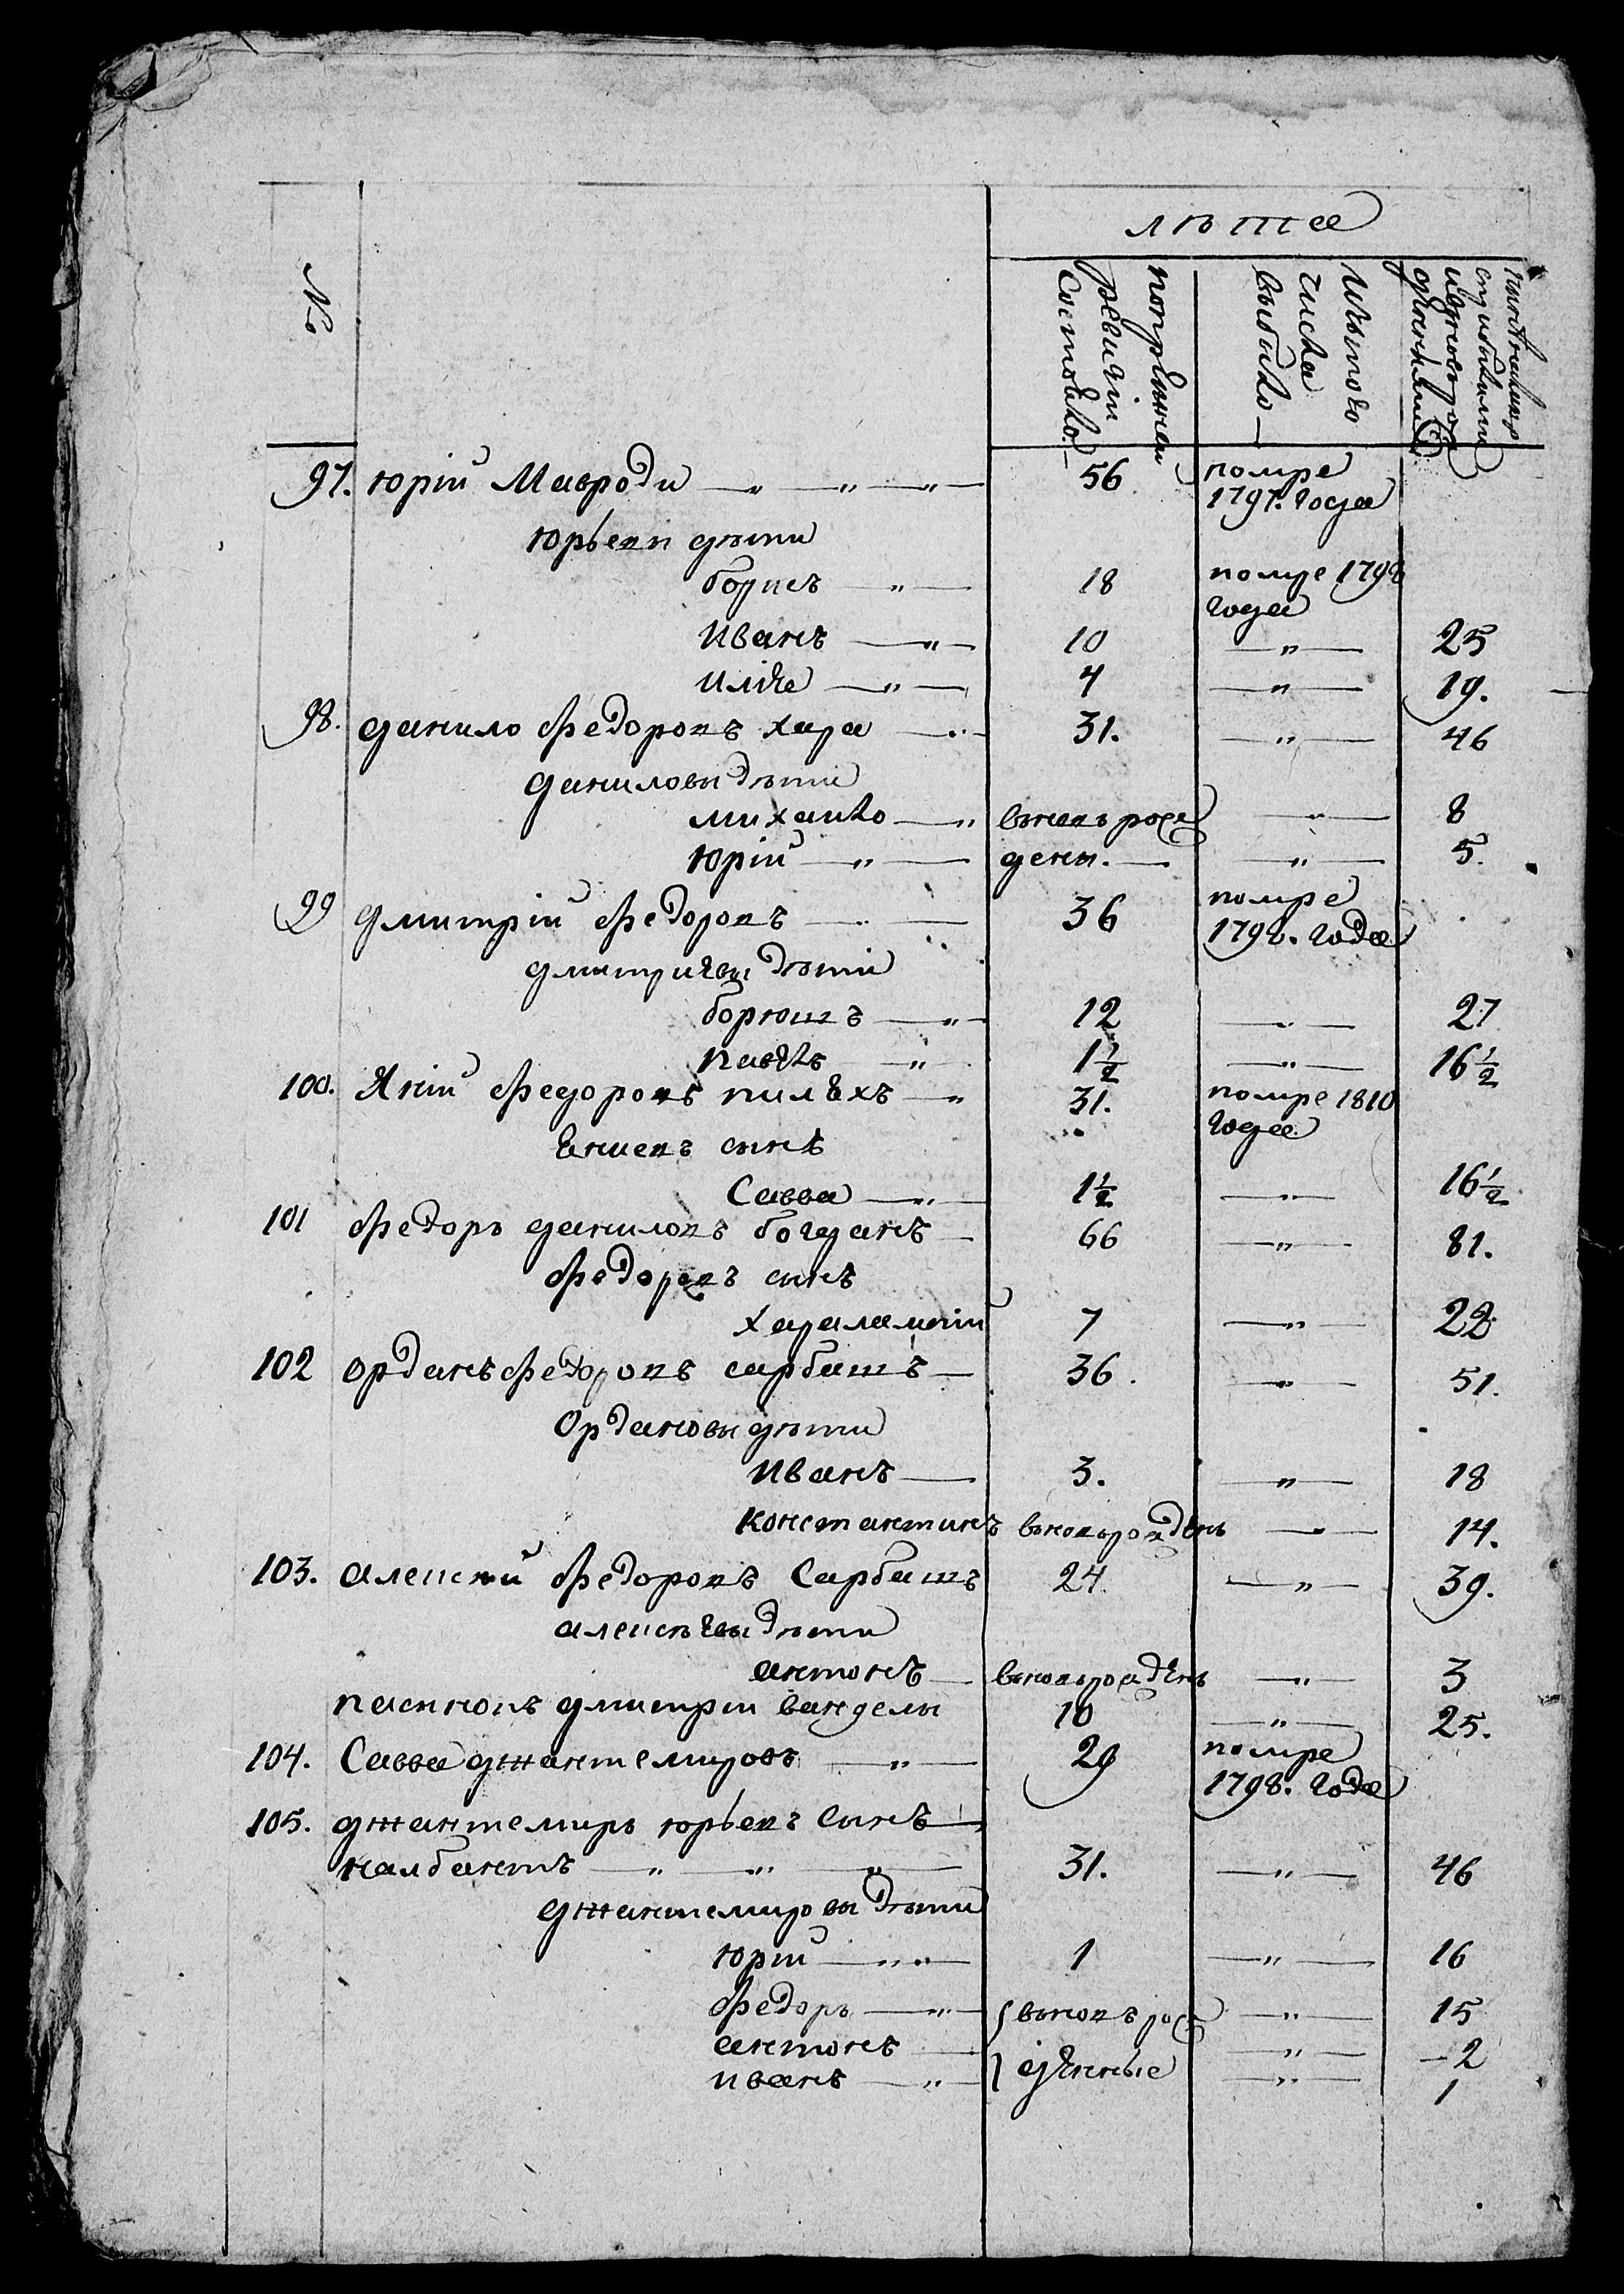 лѣта
№
попрежней ревизіи состояло
Изъ того числа выбыло
97. юрій Мавроди 56 помре 1797. года
юрьевы дѣти
борисъ 18 помре 1798 года
иванъ 10 25
илія 4 19.
98. данило федоровъ хара 31. 46
даниловы дѣти
михайло вновь рож 8
юрій дены. 5.
99 дмитрій федоровъ 36 помре 1798. года
дмитріевы дѣти
борюшъ 12 27
павелъ 1½ 16½
100. Яній федоровъ пилѣхъ 31. помре 1810 года
сынъ
Савва 1½ 16½
101 федоръ даниловъ богданъ 66 81.
федоровъ сынъ
харалампій 7 22
102 орданъ федоровъ сарбашъ 36. 51.
Ордановы дѣти
иванъ 3. 18
константинъ вновь рожденъ 14.
103. алексѣй федоровъ Сарбашъ 24. 39.
алексѣевы дѣти
антонъ вновь рожденъ 3
пасинокъ дмитрій 10 25.
104. Савва джантемировъ 29 помре 1798. года
105. джантемиръ юрьевъ сынъ
налбантъ 31. 46
джантемировы дѣти
юрій 1 16
федоръ вновь рож 15
антонъ денные 2
иванъ 1